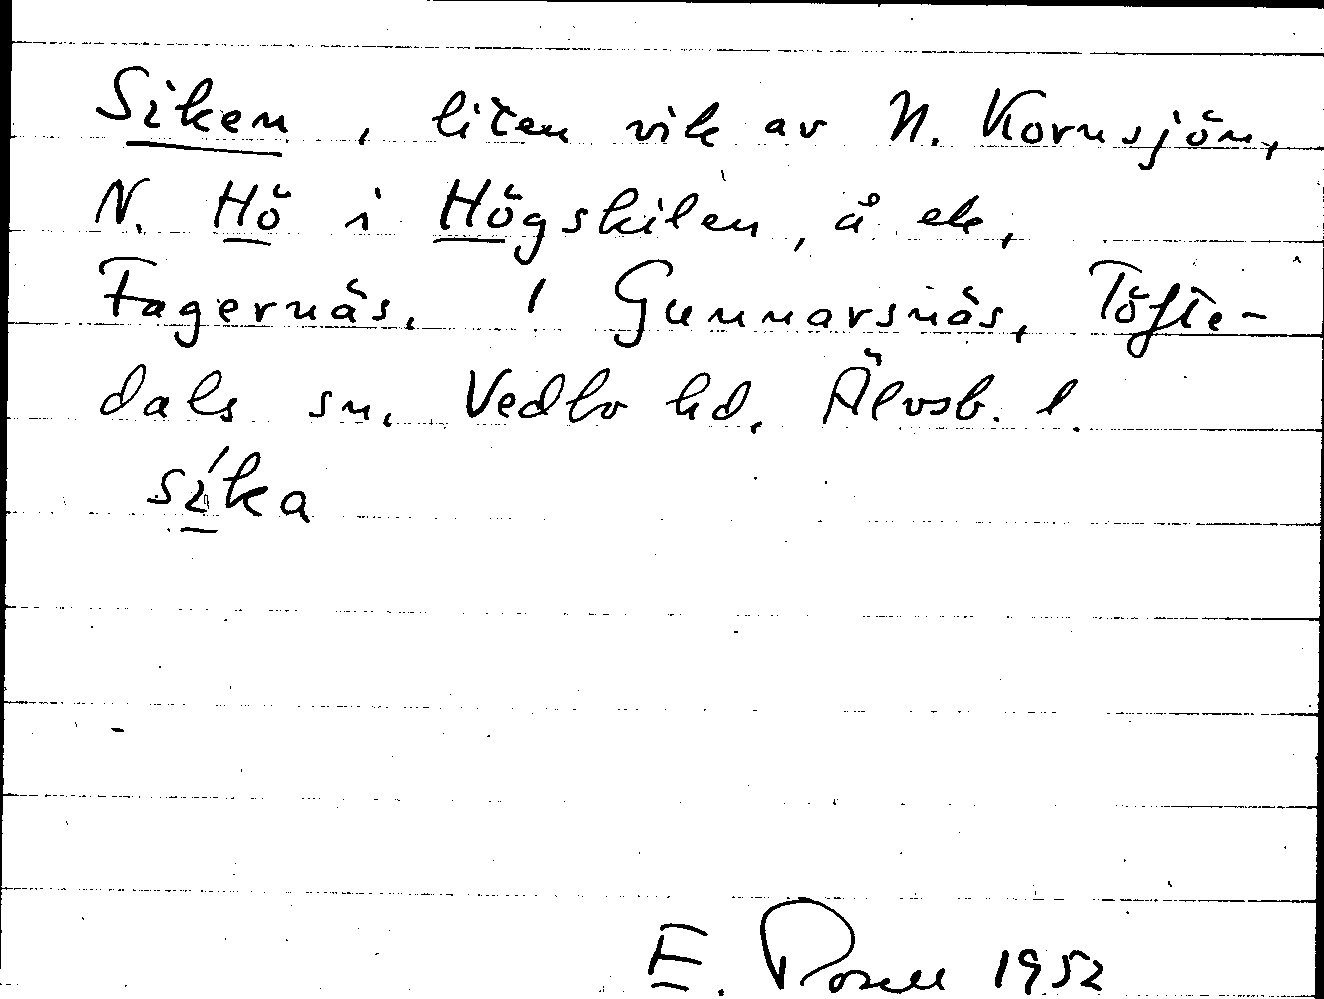 Siken, liten vik av N. Kornsjön,
N. Hö i Högskilen, å ek,
Fagernäs, / Gunnarsnäs, Töfte-
dals sn, Vedbo hd, Älvsb. l.
síka
E. Rosell 1952